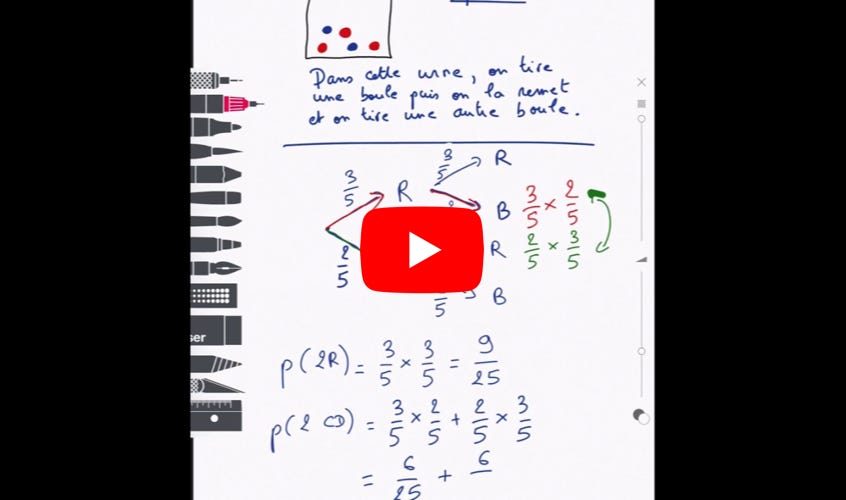 Dans cette urne, on tire
une boule puis on la remet
et on tire une autre boule.
3/5 R
3/5 R B 3/5 × 2/5
2/5 R 2/5 × 3/5
5 B
p(2R) = 3/5 × 3/5 = 9/25
p(2 CD) = 3/5 × 2/5 + 2/5 × 3/5
= 6/25 + 6
ser